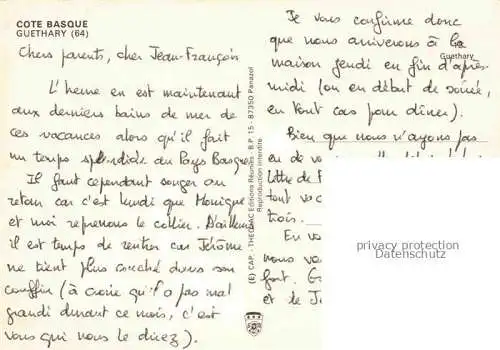 COTE BASQUE
GUETHARY (64)
Chers parents, cher Jean-François
L'heure en est maintenant
aux derniers bains de mer de
ces vacances alors qu'il fait
un temps splendide au Pays Basque
Il faut cependant songer au
retour car c'est lundi que Monique
et moi reprenons le collier. D'ailleurs
il est temps de rentrer car Jérôme
ne tient plus couché dans son
couffin (à croire qu'il a pas mal
grandi durant ce mois, c'est
vous qui nous le direz).
(E) CAP. - THEOJAC Editions Réunies - B.P. 15 - 87350 Panazol
Reproduction interdite
Je vous confirme donc
que nous arriverons à la
Guethary
maison jeudi en fin d'après-
midi (ou en début de soirée,
en tout cas pour dîner).
Bien que nous n'ayons pas
eu de vo
lettre de F
tout vo
trois.
En vo
nous v
font. G
et de J
privacy protection
Datenschutz